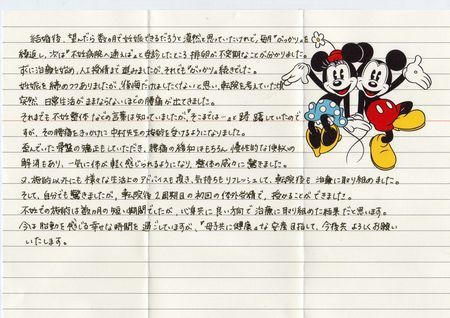 結婚後、望んだら数ヵ月で妊娠できるだろうと漠然と思っていたけれど、毎月"がっかり"を
繰返し、次は"不妊病院へ通えば"と受診したところ排卵が不定期なことが分かりました。
すぐに治療を始め、人工授精まで進みましたが、それでも"がっかり"続きでした。
妊娠を諦めつつありましたが、後悔だけはしたくないと思い、転院を考えていた頃
突然、日常生活がままならないほどの腰痛が出てきました。
それまでも不妊整体などの言葉は知っていましたが、"そこまでは…"と躊躇していので
すが、その腰痛をきっかけに中村先生の施術を受けるようになりました。
歪んでいた骨盤の矯正をしていただき、腰痛の緩和はもちろん慢性的な便秘の
解消もあり、一気に体が軽く感じられるようになり、整体の威力に驚きました。
又、施術以外にも様々な生活上のアドバイスも頂き、気持ちもリフレッシュして、転院後も治療に取り組めました。
そして、自分でも驚きましたが、転院後2周期目の初回の体外受精で、授かることができました!
不妊での施術は数ヵ月の短い期間でしたが、心身共に良い方向で治療に取り組めた結果だと思います。
今は胎動を感じる幸せな時間を過ごしていますが、"母子共に健康"な安産目指して、今後共よろしくお願い
いたします。